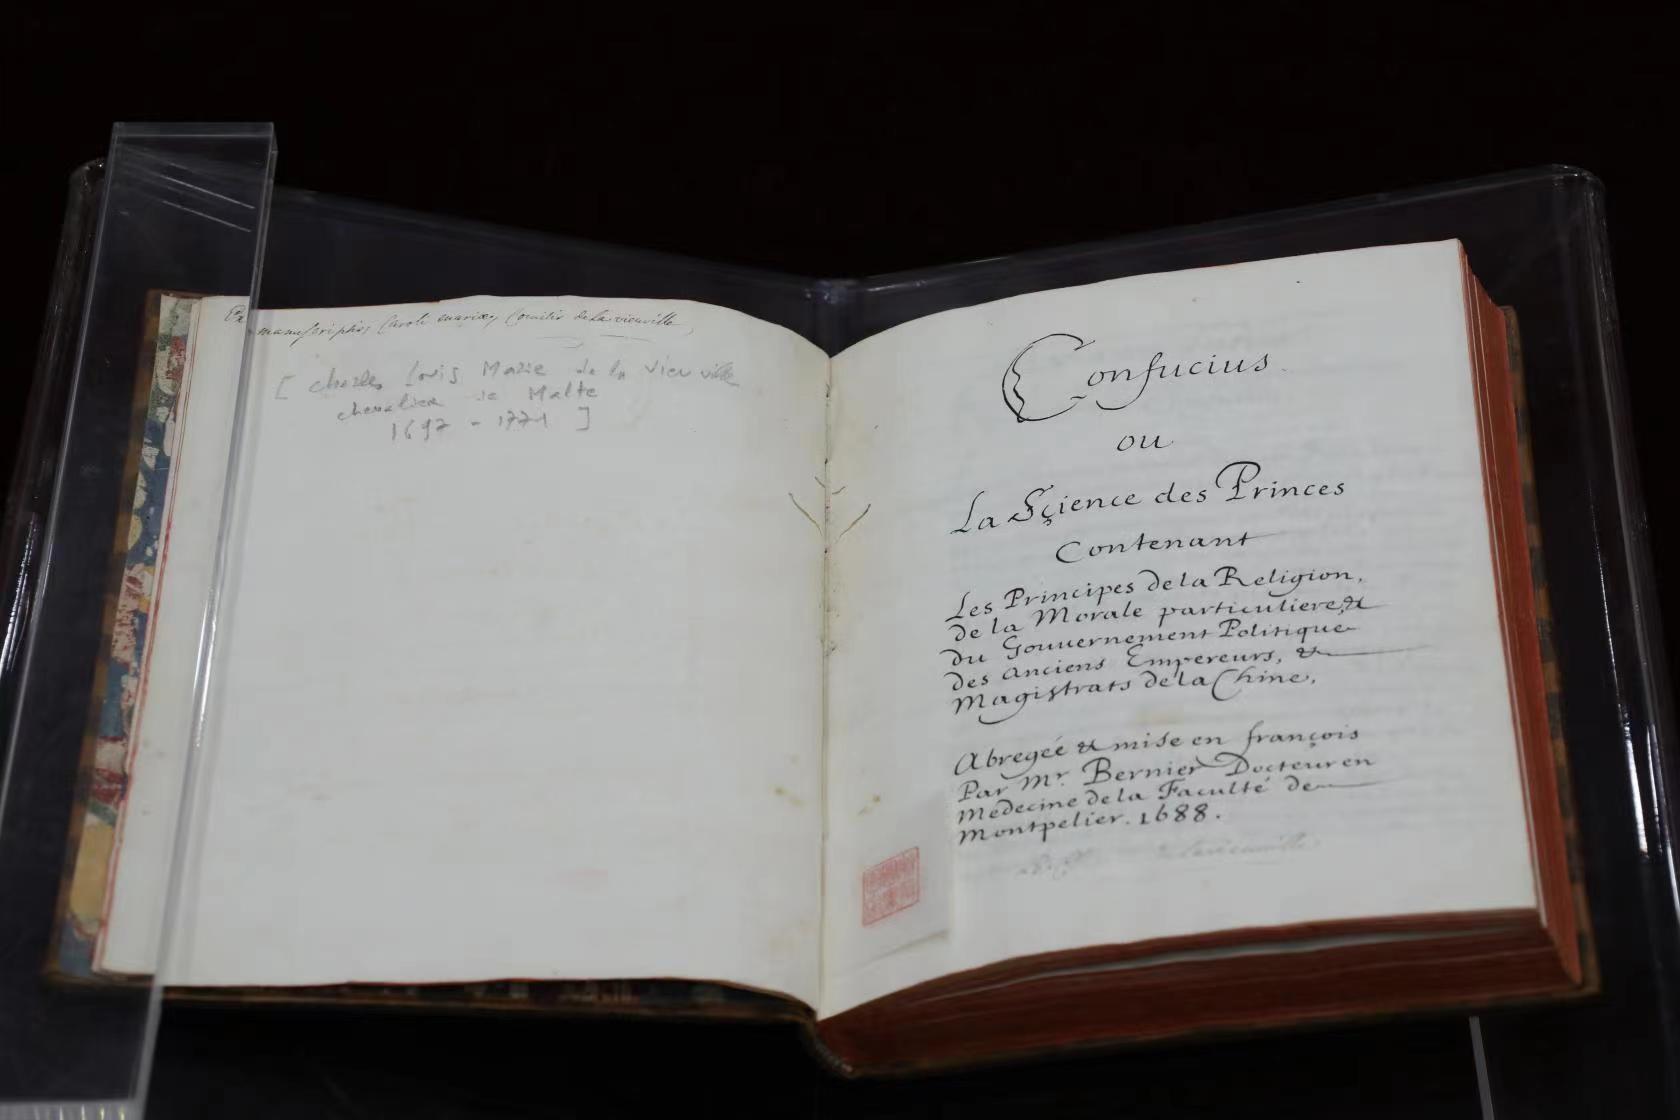 Ex manuscriptis Caroli mariae, Comitis de la vieuville
[ Charles Louis Marie de la Vieuville
chevalier de Malte
1697 - 1771 ]
Confucius
ou
La Sçience des Princes
Contenant
Les Principes de la Religion,
de la Morale particuliere, &
du Gouvernement Politique
des anciens Empereurs, &
Magistrats de la Chine,
Abregée & mise en françois
Par Mr. Bernier Docteur en
Medecine de la Faculté de
Montpelier. 1688.